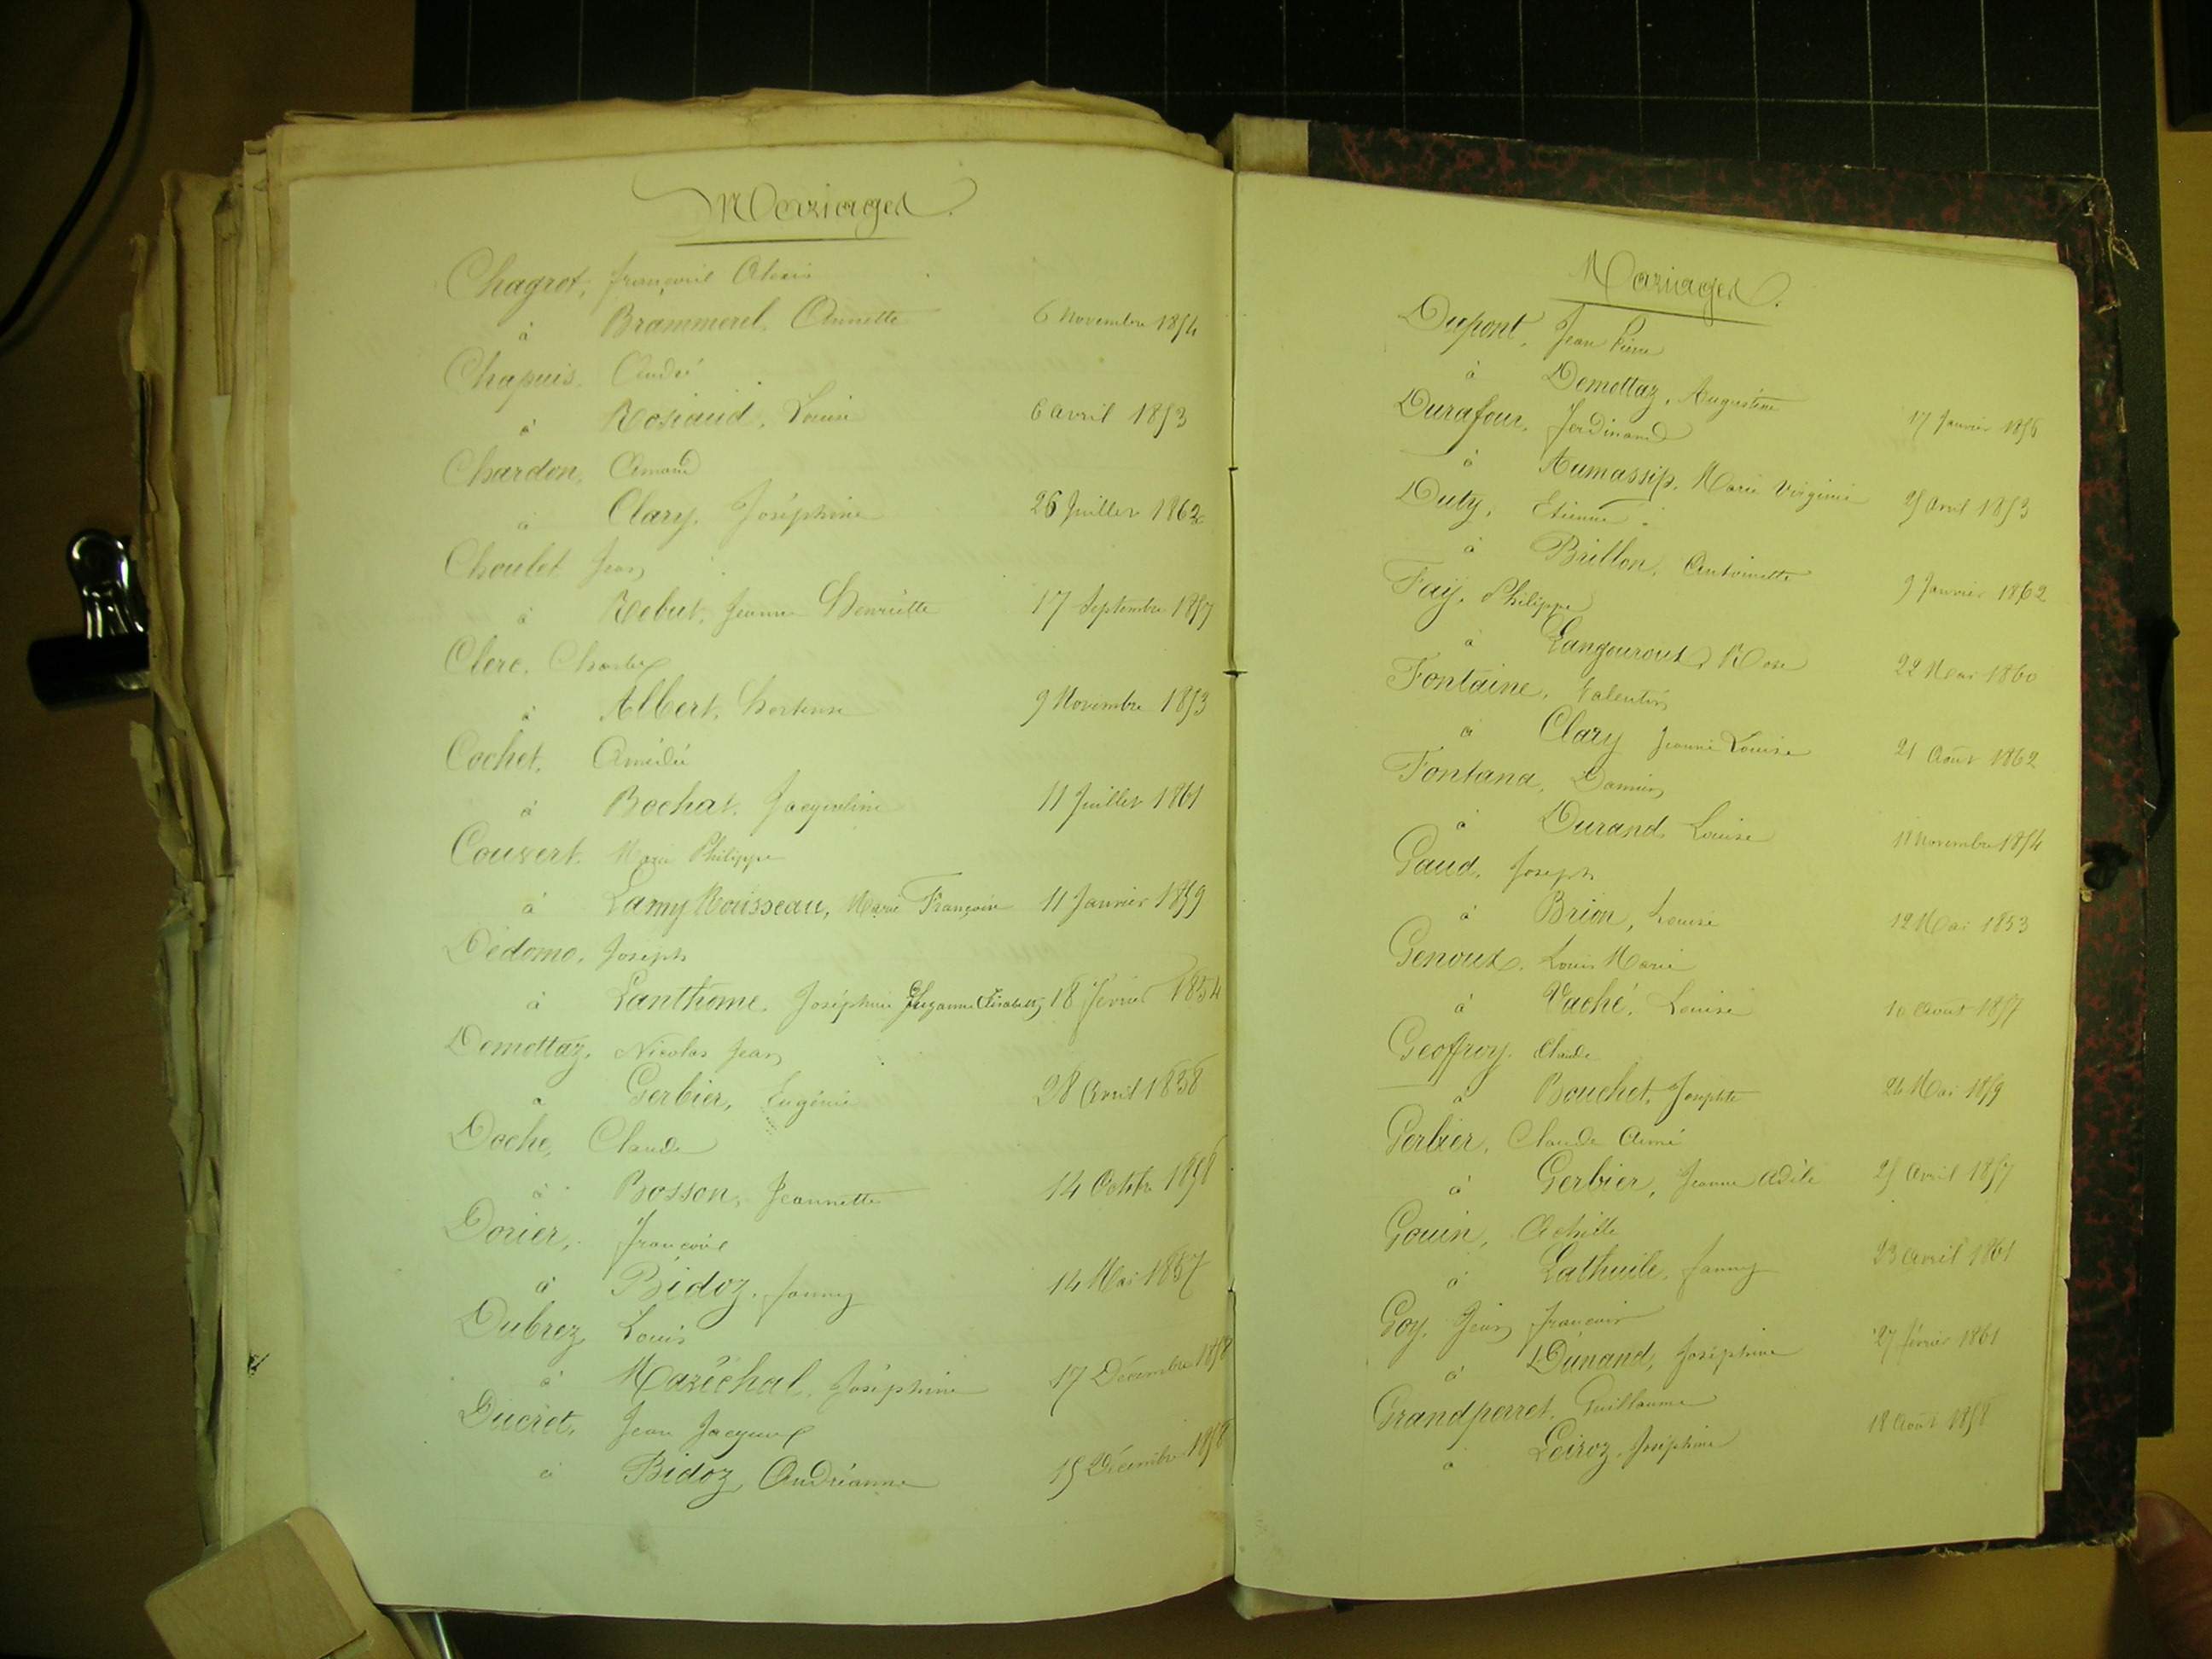 Mariages.
Chagrot, françois Alexis
à Brammerel, Annette 6 Novembre 1854
Chapuis, André
à Rosiaud, Louise 6 avril 1853
Chardon, Amand
à Clary, Joséphine 26 Juillet 1862
Choulet Jean
à Rebut, Jeanne Henriette 17 Septembre 1857
Clerc, Charles
à Albert, hortense 9 Novembre 1853
Cochet, Amédée
à Bochat, Jacqueline 11 Juillet 1861
Couvert, Marie Philippe
à Lamy Rousseau, Marie Françoise 11 Janvier 1859
Dédomo, Joseph
à Lanthome, Joséphine Suzanne Elisabeth 18 février 1854
Demottaz, Nicolas Jean
à Gerbier, Eugénie 28 Avril 1858
Doche, Claude
à Bosson, Jeannette 14 Octobre 1858
Dorier, françois
à Bidoz, fanny 14 Mai 1857
Dubrez Louis
à Maréchal, Joséphine 17 Décembre 1858
Ducret, Jean Jacques
à Bidoz, Andréanne 15 Décembre 1858
Mariages.
Dupont, Jean Pierre
à Demottaz, Augustine 17 Janvier 1856
Durafour, ferdinand
à Aumassip, Marie Virginie 25 Avril 1853
Duty, Etienne
à Brillon, Antoinette 9 Janvier 1862
Faÿ, Philippe
à Langouroux, Rose 22 Mai 1860
Fontaine, Valentin
à Clary Jeanne Louise 21 Août 1862
Fontana, Damien
à Durand, Louise 11 Novembre 1854
Gaud, Joseph
à Brion, Louise 12 Mai 1853
Genoux, Louis Marie
à Vaché, Louise 10 Août 1857
Geoffroy, Claude
à Bouchet, Josephte 24 Mai 1859
Gerbier, Claude Aimé
à Gerbier, Jeanne Adèle 25 Avril 1857
Gouin, Achille
à Lathuile, fanny 23 Avril 1861
Goy, Jean françois
à Dunand, Joséphine 27 février 1861
Grandperret, Guillaume
à Loiroz, Joséphine 18 Août 1858